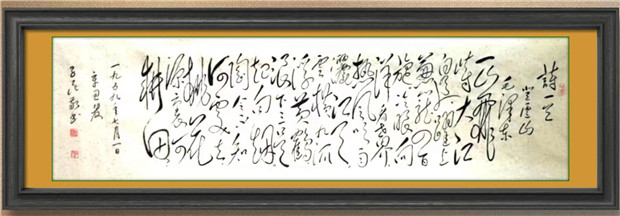 詩一首
登廬山
毛澤東
一山飛
峙大江
邊躍上
葱蘢四百
旋冷眼向
洋看世界
熱風吹雨
灑江天
雲橫九派
浮黃鶴
浪下三吳
起白烟
陶令不知
何處去
桃花
源裏可
耕田
一九五九年七月一日
辛丑